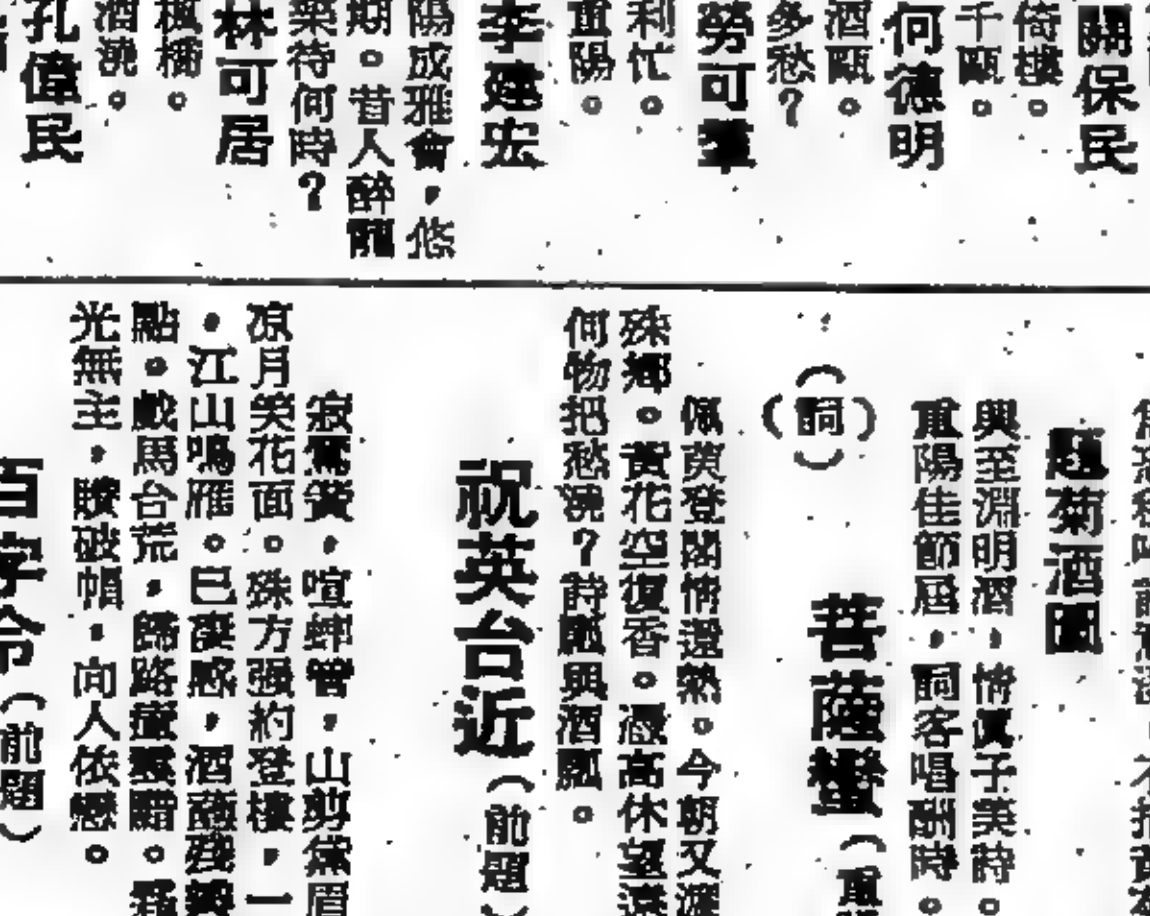 關保民
倚樓。
千甌。
何德明
酒甌。
多愁？
勞可
利忙。
重陽。
李建宏
陽成雅會，悠
期。昔人醉
樂待何時？
林可居
楓橋。
酒澆。
孔偉民
題菊酒圖
興至淵明酒，情真子美詩。
重陽佳節屆，詞客唱酬時。
（詞）
菩薩蠻（重
佩萸登閣情還熱。今朝又
殊鄉。黃花空復香。憑高休望遠
何物把愁澆？詩興酒
祝英台近（前題）
寂鶯簧，喧蟀管，山剪黛眉
涼月笑花面。殊方強約登樓，一
，江山鳴雁。已淒感，酒殘
點。戲馬台荒，歸路黯。
光無主，賸破帽，向人依戀。
百字令（前題）